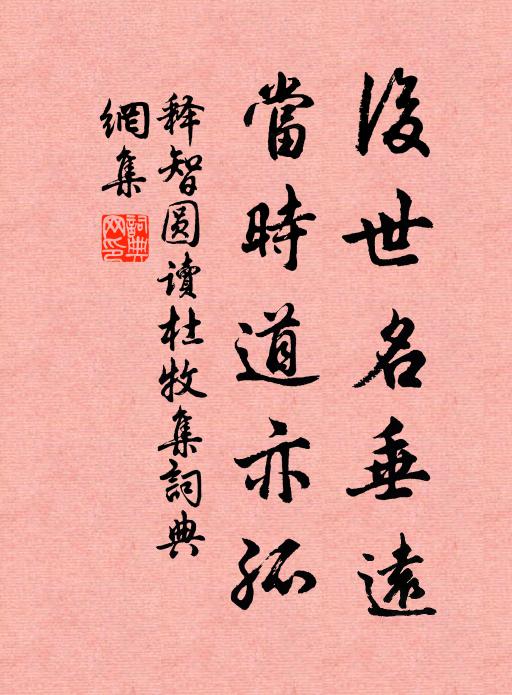 後世名垂遠
當時道亦孤
释智圆讀杜牧集詞典
網集
詞典
网印